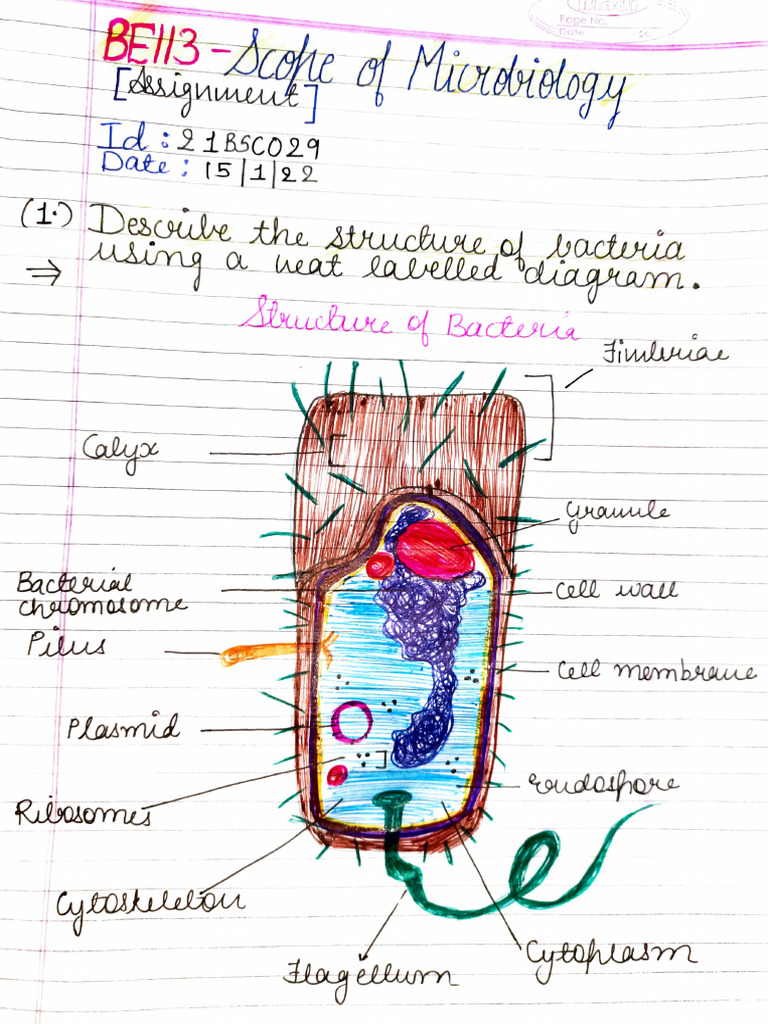 Page No.
Date 20
BE113 - Scope of Microbiology
[Assignment]
Id : 21BSC029
Date : 15|1|22
(1.) Describe the structure of bacteria
⇒ using a neat labelled diagram.
Structure of Bacteria
Fimbriae
Calyx
Granule
Bacterial
chromosome
Cell wall
Pilus
Cell membrane
Plasmid
Endospore
Ribosomes
Cytoskeleton
Cytoplasm
Flagellum